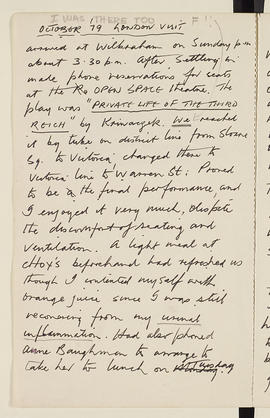 I WAS THERE TOO F!!
OCTOBER 79 LONDON VISIT
arrived at Wilbraham on Sunday p.m
about 3.30 p.m. After settling in
made phone reservations for seats
at the Ro OPEN SPACE theatre. The
play was "PRIVATE LIFE OF THE THIRD
REICH" by We reached
it by tube on district line from Sloane
Sq. to Victoria, changed there to
Victoria line to Warren St: Proved
to be a the final performance and
I enjoyed it very much, despite
the discomfort of seating and
ventilation. A light meal at
CHOX's beforehand had refreshed us
though I contented myself with
orange juice since I was still
recovering from my urinal
inflammation. Had also phoned
Anne Baughman to arrange to
take her to lunch on Tuesday